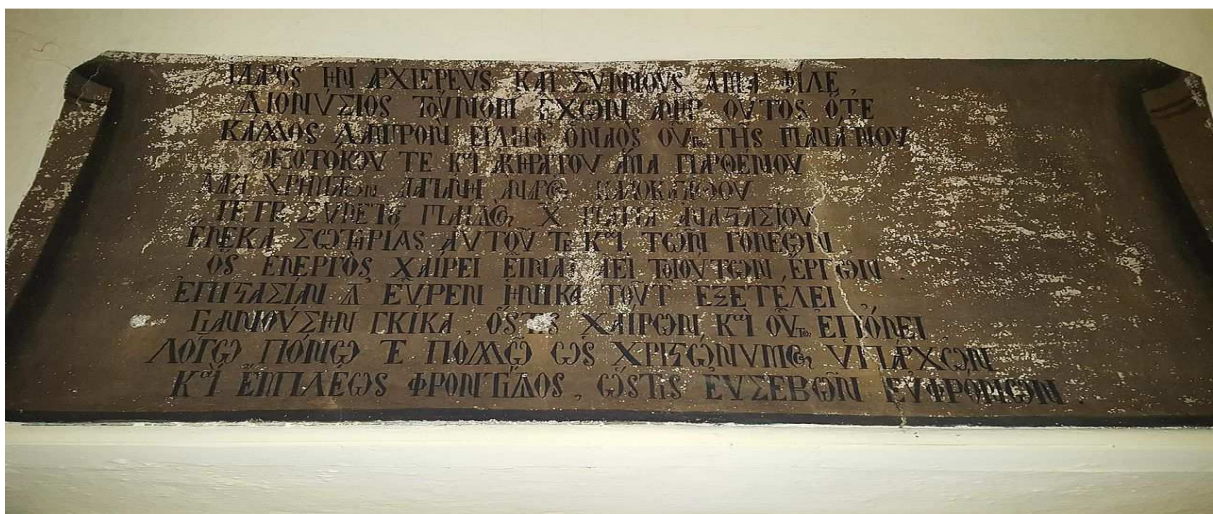 ἸΔΡΟΣ ΗΝ ΑΡΧΙΕΡΕΥΣ ΚΑΙ ΣΥΝΝΟΥΣ ΑΜΑ ΦΙΛΕ,
ΔΙΟΝΥΣΙΟΣ ΤΟΥΝΟΜ ΕΧΩΝ ΑΝΗΡ ΟΥΤΟΣ ὉΤΕ
ΚΑΛΛΟΣ ΛΑΜΠΡΟΝ ΕΙΛΗΦ ΟΝΑΟΣ ΟΥΤΟΣ ΤΗΣ ΠΑΝΑΓΝΟΥ
ΘΕΟΤΟΚΟΥ ΤΕ ΚΑΙ ΑΚΗΡΑΤΟΥ ΑΜΑ ΠΑΡΘΕΝΟΥ
ΧΡΗΜΑΤΩΝ ΔΑΠΑΝΗ ΑΝΔΡΟΣ
ΠΑΙΔΟΣ Χ ΑΝΑϚΑΣΙΟΥ
ΕΝΕΚΑ ΣΩΤΗΡΙΑΣ ΑΥΤΟΥ ΤΕ ΚΑΙ ΤΩΝ ΓΟΝΕΩΝ
ΟΣ ΕΝΕΡΓΟΣ ΧΑΙΡΕΙ ΕΙΝΑΙ ΑΕΙ ΤΟΙΟΥΤΩΝ ΕΡΓΩΝ.
ΕΠΙϚΑΣΙΑΝ Δ ΕΥΡΕΝ ΗΝΙΚΑ ΤΟΥΤ ΕΞΕΤΕΛΕΙ
ΓΙΑΝΝΟΥΣΗΝ ΓΚΙΚΑ, ΟΣΤΙΣ ΧΑΙΡΩΝ ΚΑΙ ΟΥΤΩ ΕΠΟΝΕΙ
ΛΟΓΩ ΠΟΝΩ Τ ΕΠΟΛΛΩ ΩΣ ΧΡΙϚΩΝΥΜΟΣ ΥΠΑΡΧΩΝ
ΚΑΙ ΕΜΠΛΕΩΣ ΦΡΟΝΤΙΔΟΣ, ΩΣΤΙΣ ΕΥΣΕΒΩΝ ΕΥΦΡΟΝΩΝ.